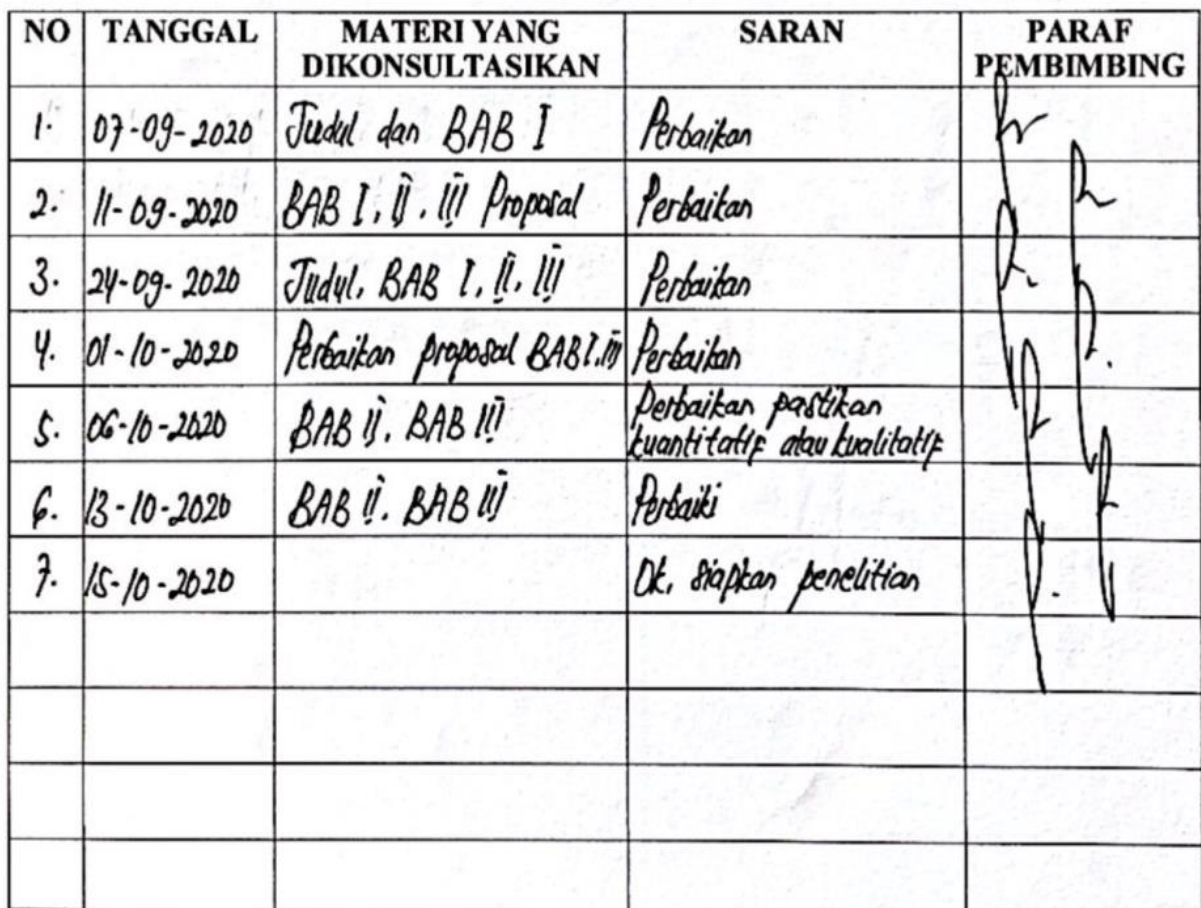 NO TANGGAL MATERI YANG DIKONSULTASIKAN SARAN PARAF PEMBIMBING
1. 07-09-2020 Judul dan BAB I Perbaikan
2. 11-09-2020 BAB I, II, III Proposal Perbaikan
3. 24-09-2020 Judul, BAB I, II, III Perbaikan
4. 01-10-2020 Perbaikan proposal BAB I, III Perbaikan
5. 06-10-2020 BAB II, BAB III Perbaikan pastikan kuantitatif atau kualitatif
6. 13-10-2020 BAB II, BAB III Perbaiki
7. 15-10-2020 Ok, siapkan penelitian